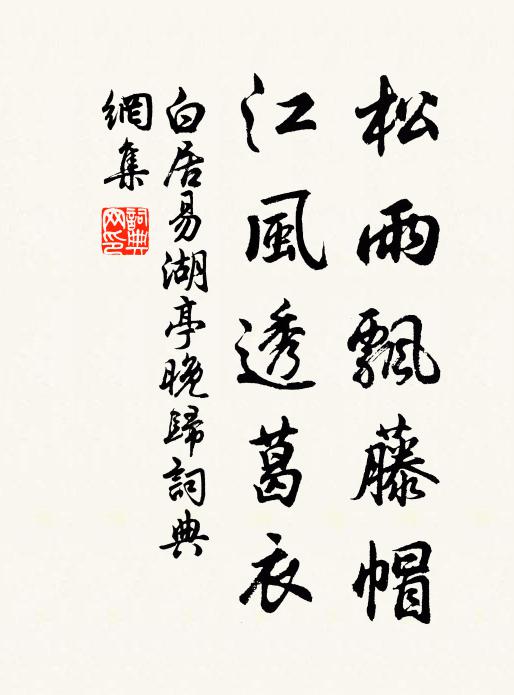 松雨飄藤帽
江風透葛衣
白居易湖亭晚歸詞典
網集
詞典網印